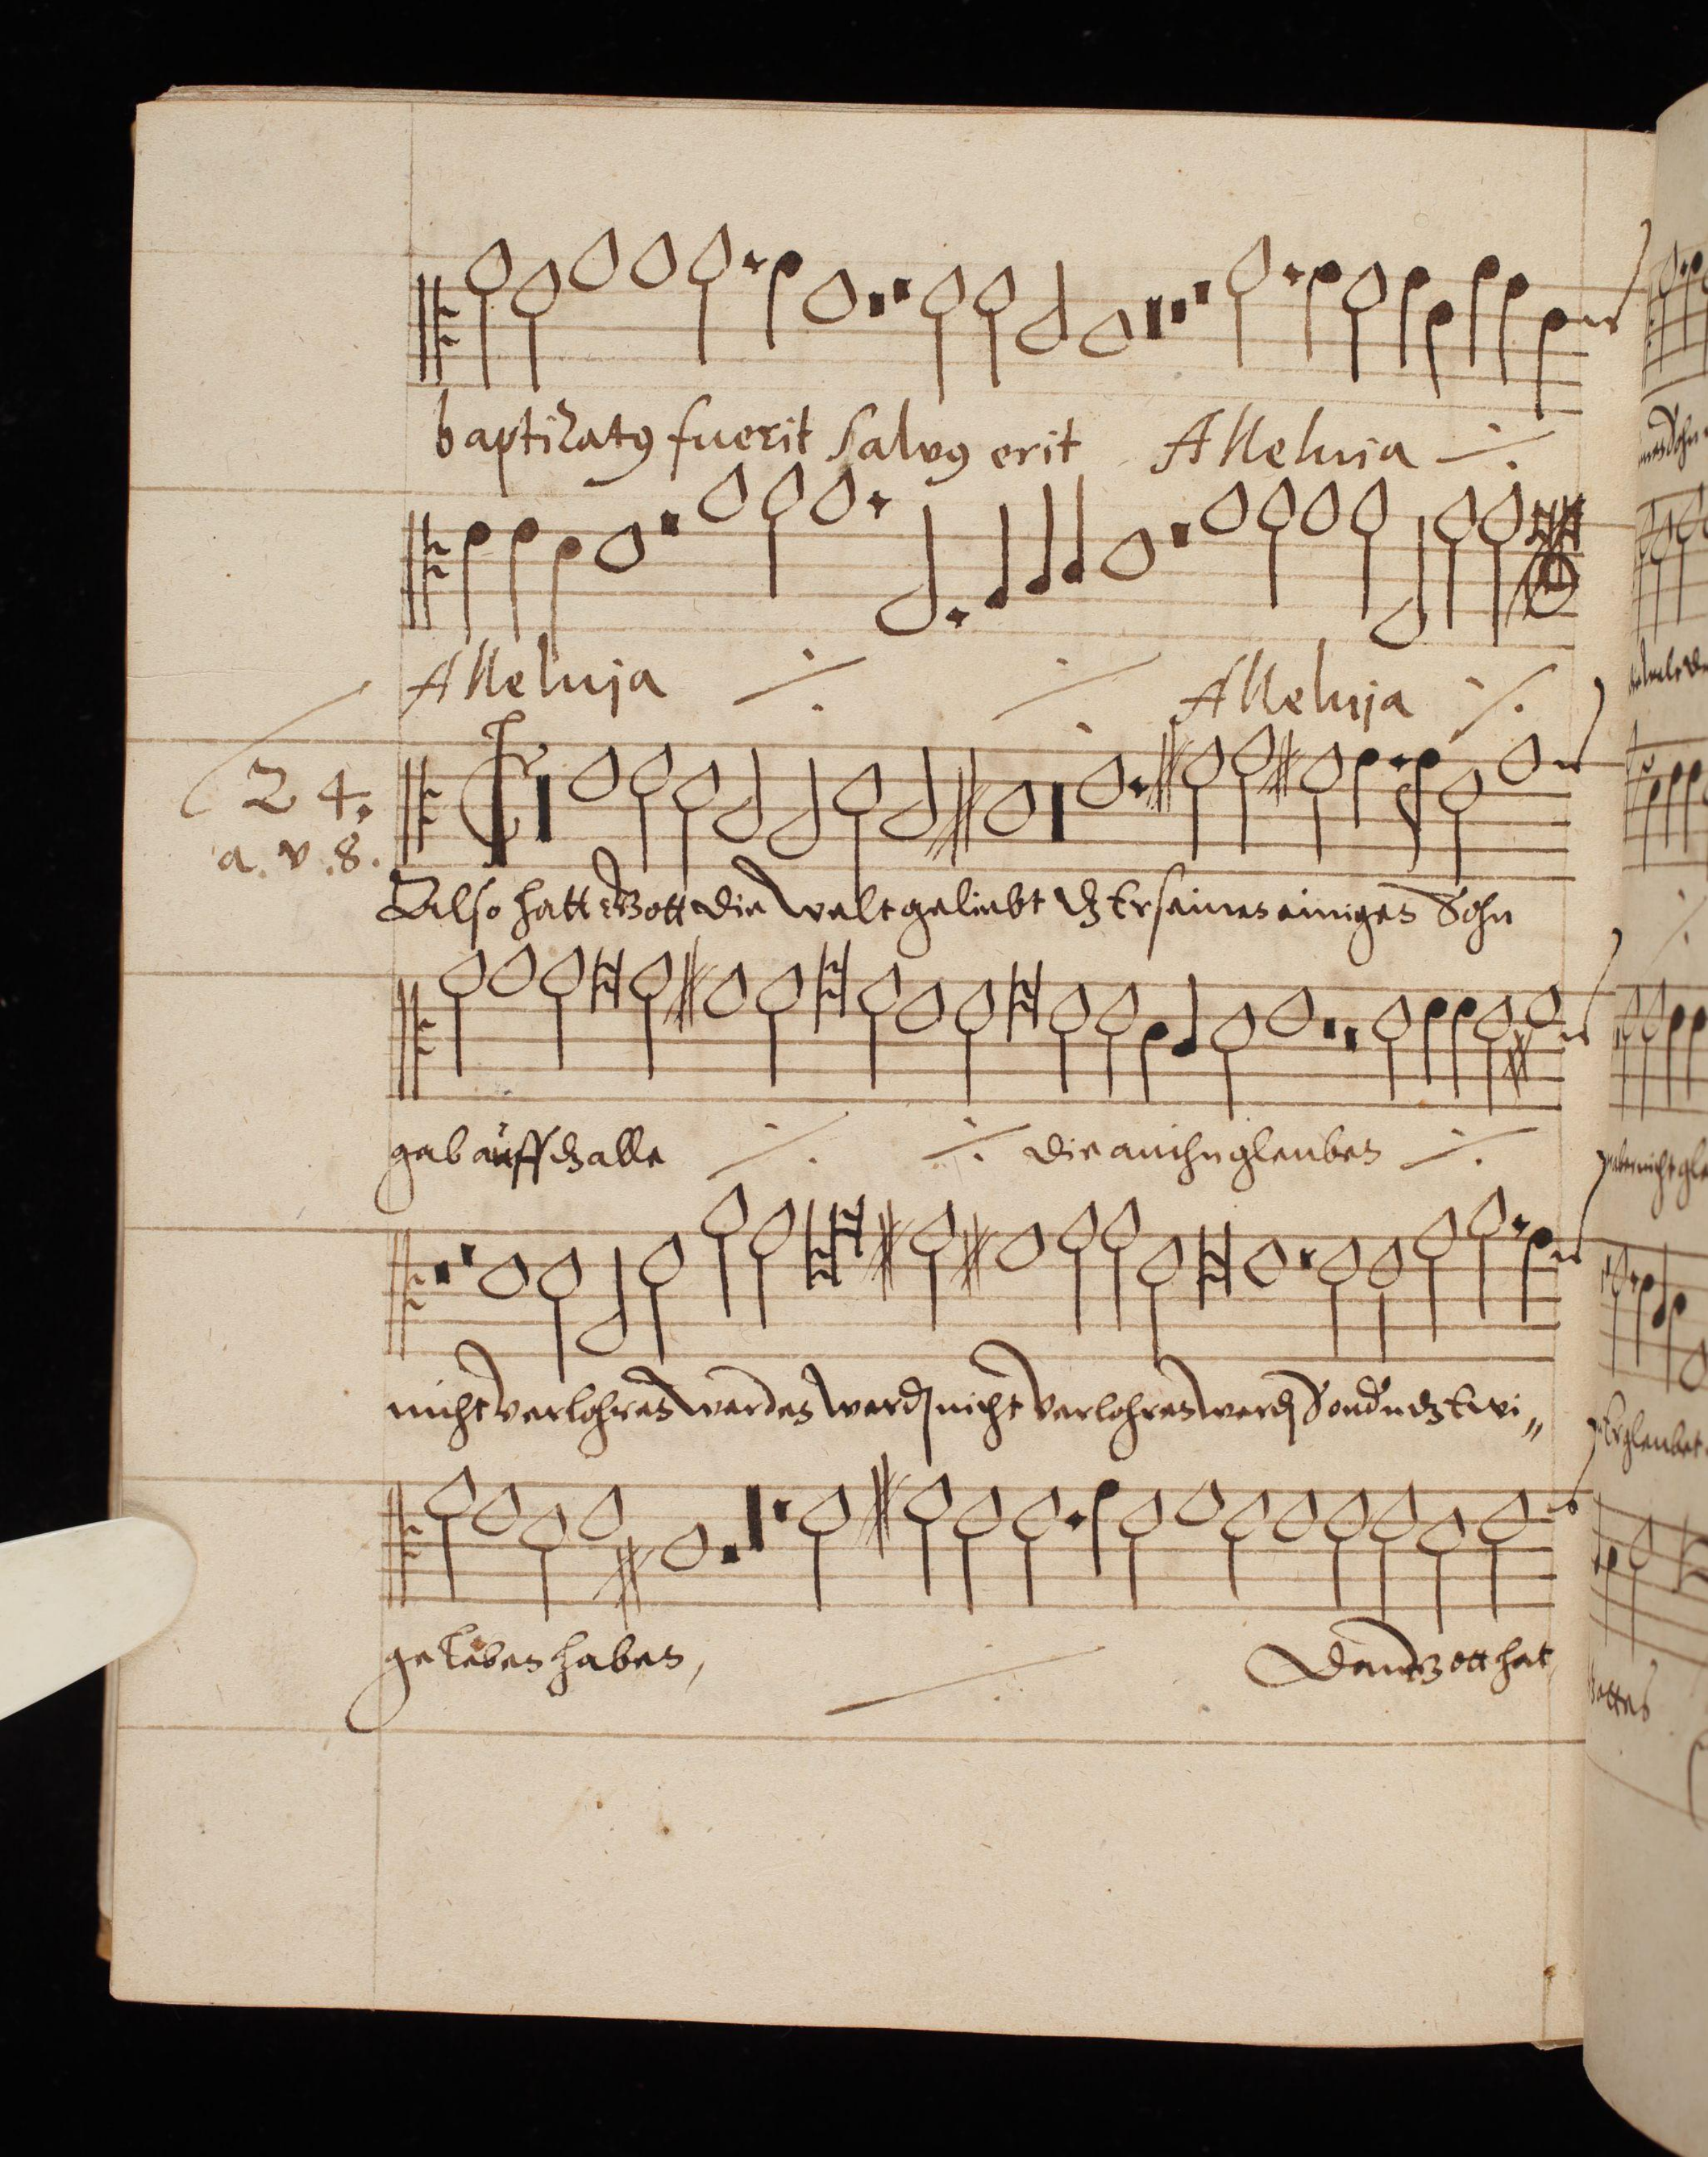 baptizatꝰ fuerit Salvꝰ erit Alleluia
Alleluja Alleluja
24.
a. v. 8.
Also hatt Gott die Welt geliebt dz Er seinen einigen Sohn
gab auff dz alle die an ihn gleuben
nicht verlohren werden werdē nicht verlohren werdē Sondn dz Ewi„
ge Leben haben, Denn Gott hat